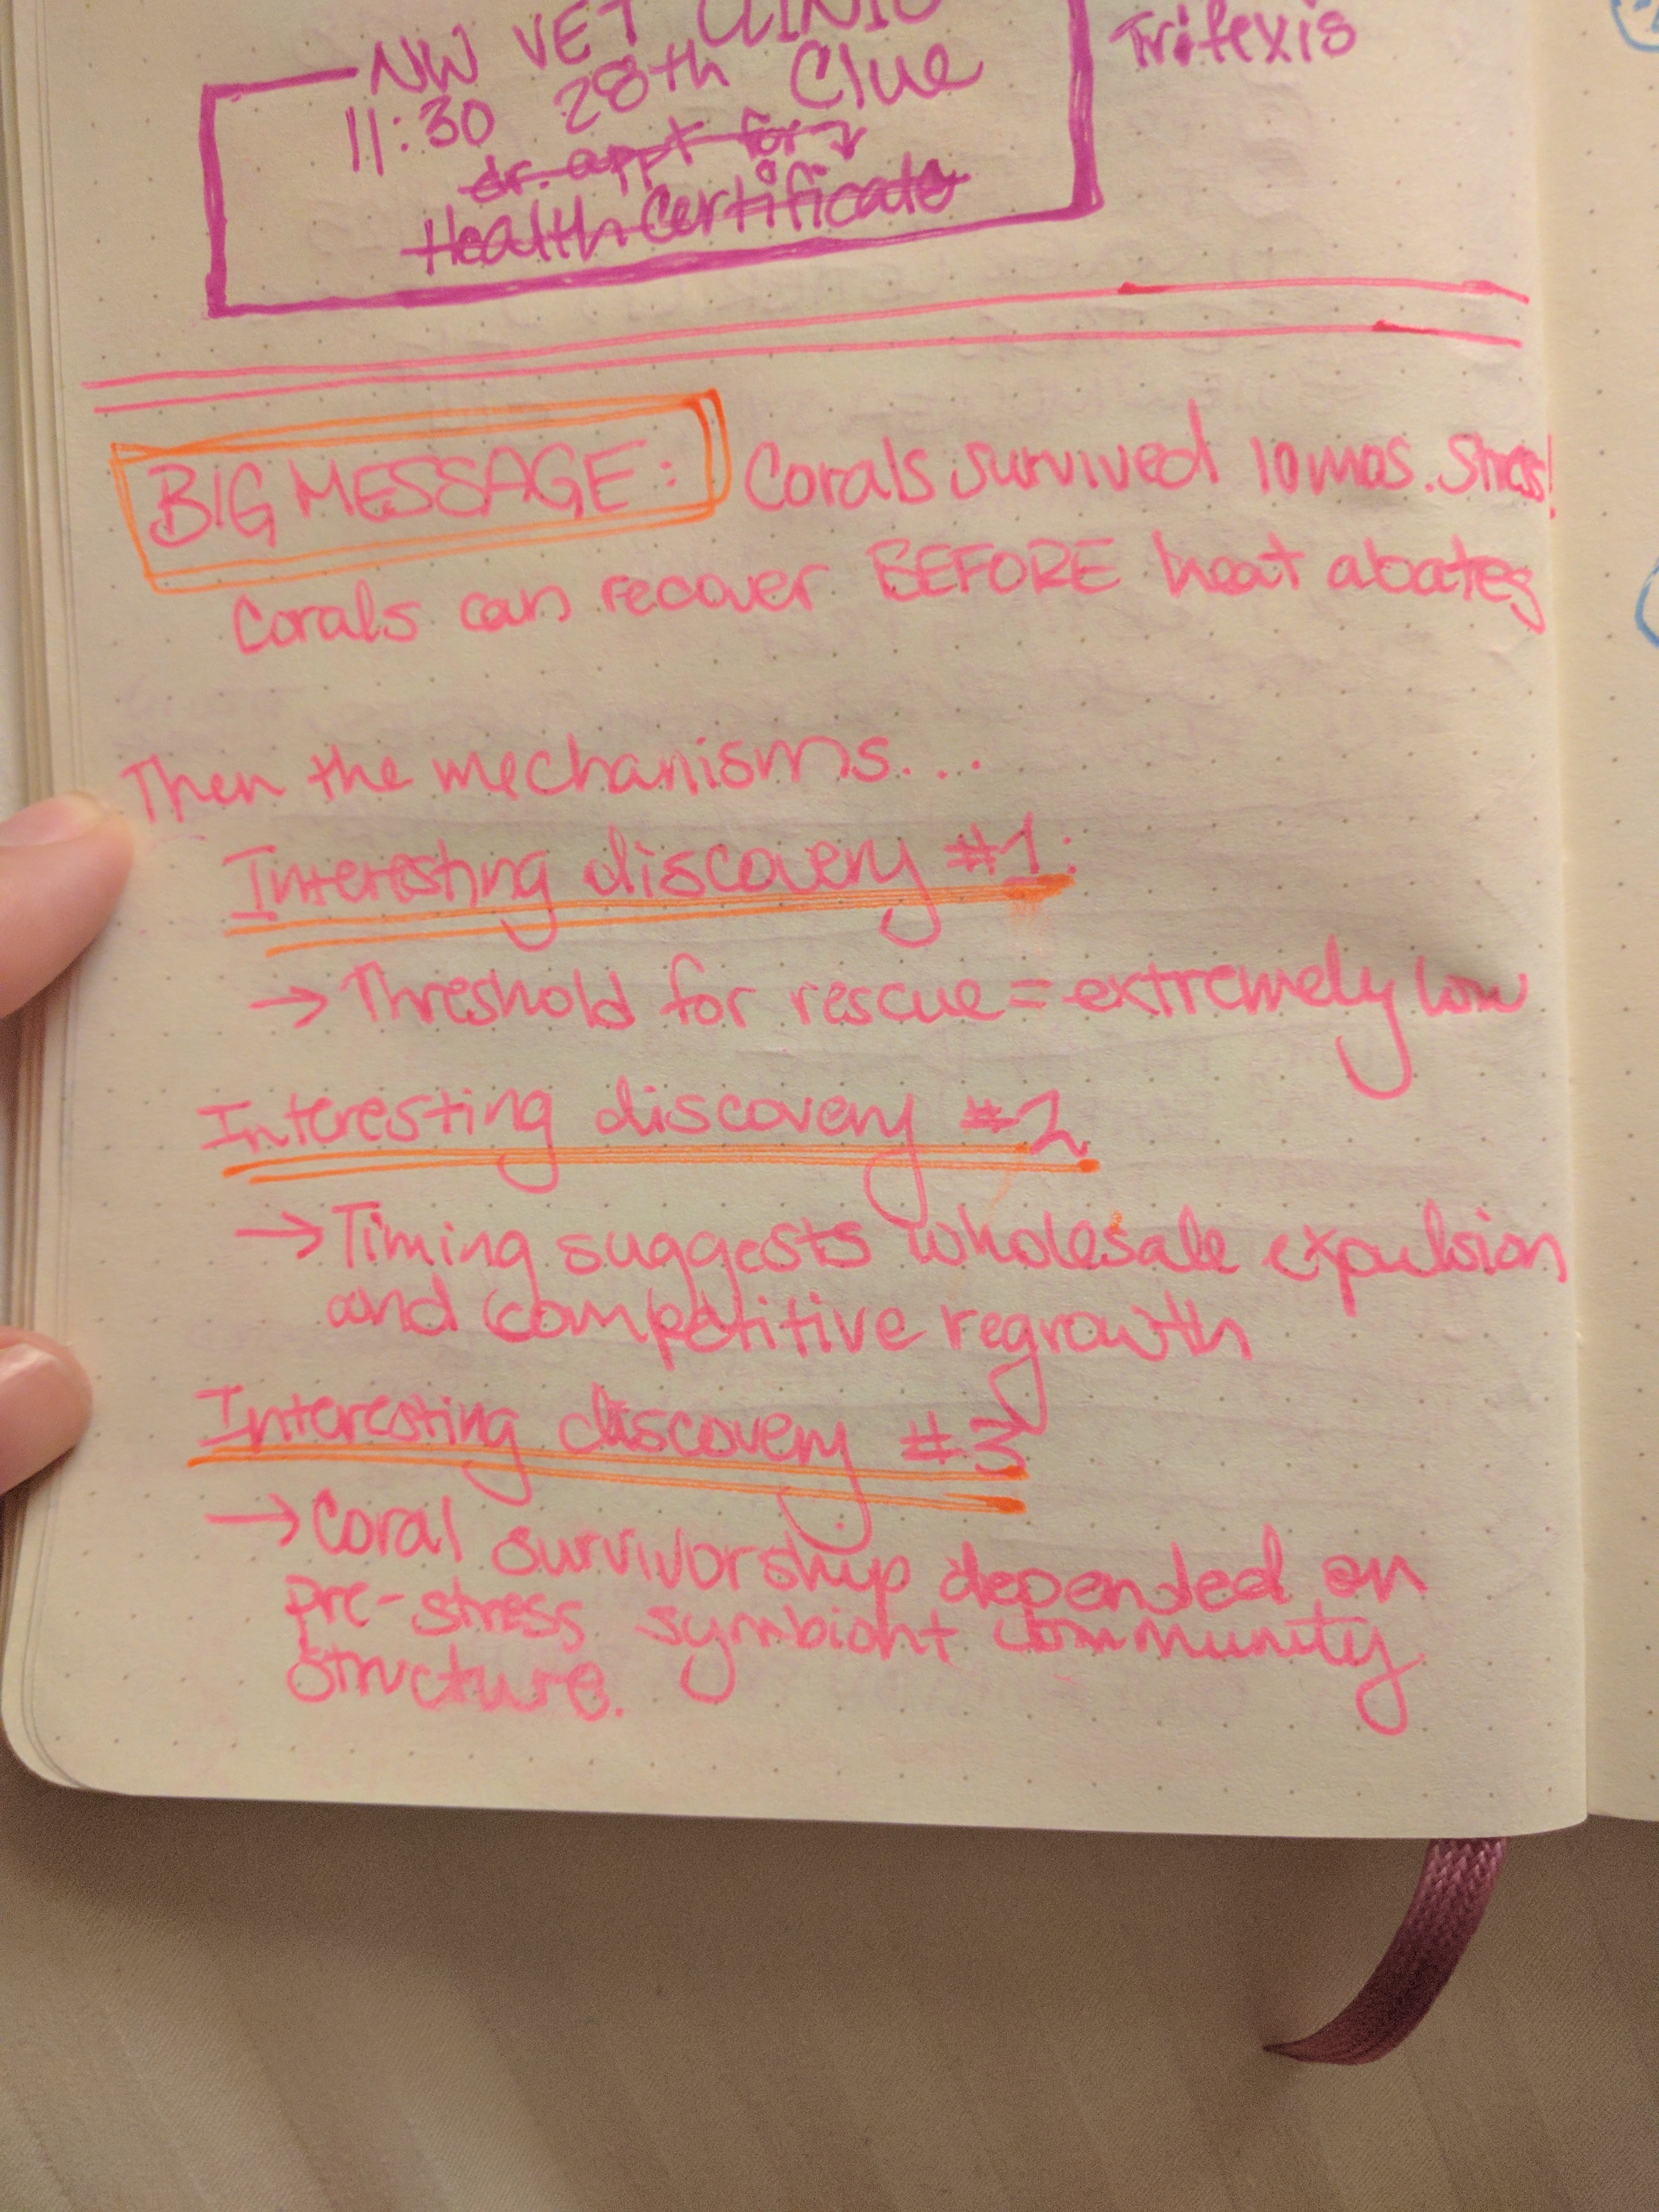 NW VET CLINIC
Trifexis
11:30 28th Clue
dr. appt for
Health Certificate
BIG MESSAGE: Corals survived 10 mos. stress!
Corals can recover BEFORE heat abates
Then the mechanisms...
Interesting discovery #1:
→ Threshold for rescue = extremely low
Interesting discovery #2
→ Timing suggests wholesale expulsion
and competitive regrowth
Interesting discovery #3
→ Coral survivorship depended on
pre-stress symbiont community
structure.